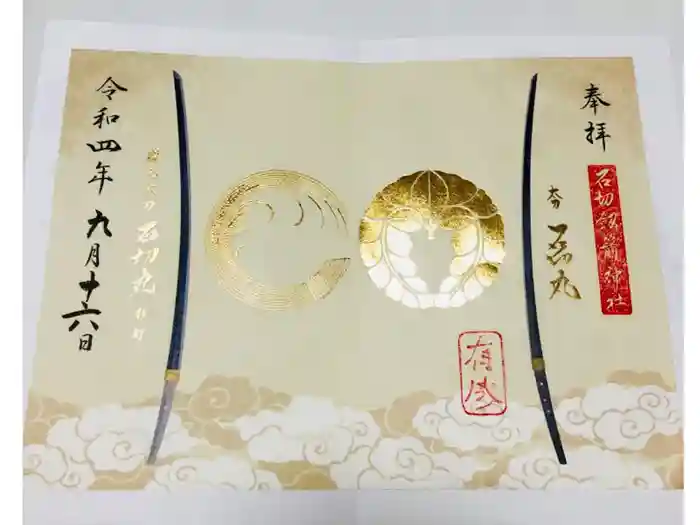 奉拝
石切劔箭神社
太刀 石切丸
有成
石切丸
令和四年九月十六日